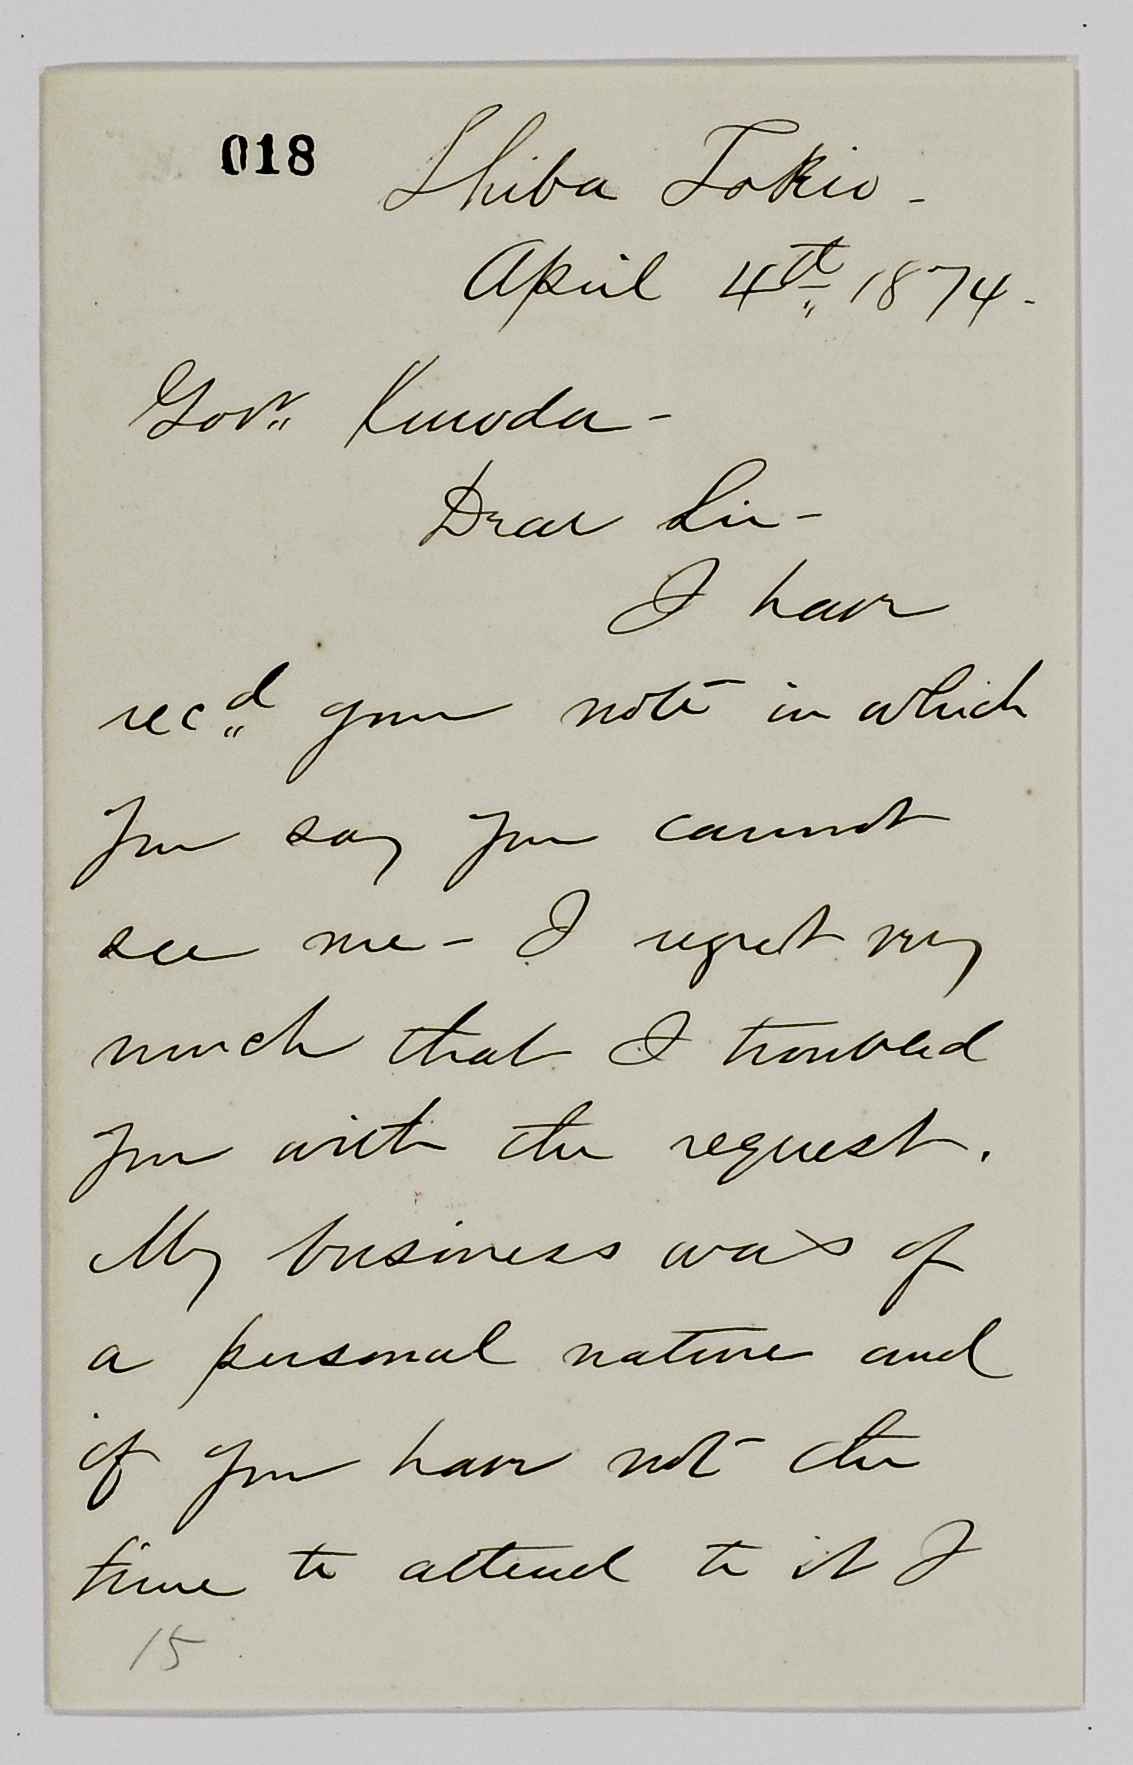 018
Shiba Tokio -
April 4th 1874 -
Govr Kuroda -
Dear Sir -
I have
recd your note in which
you say you cannot
see me - I regret very
much that I troubled
you with the request.
My business was of
a personal nature and
if you have not the
time to attend to it I
15